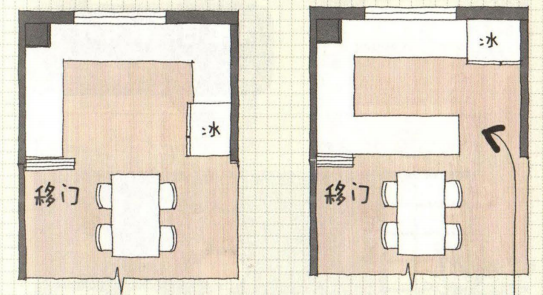 冰
移门
冰
移门